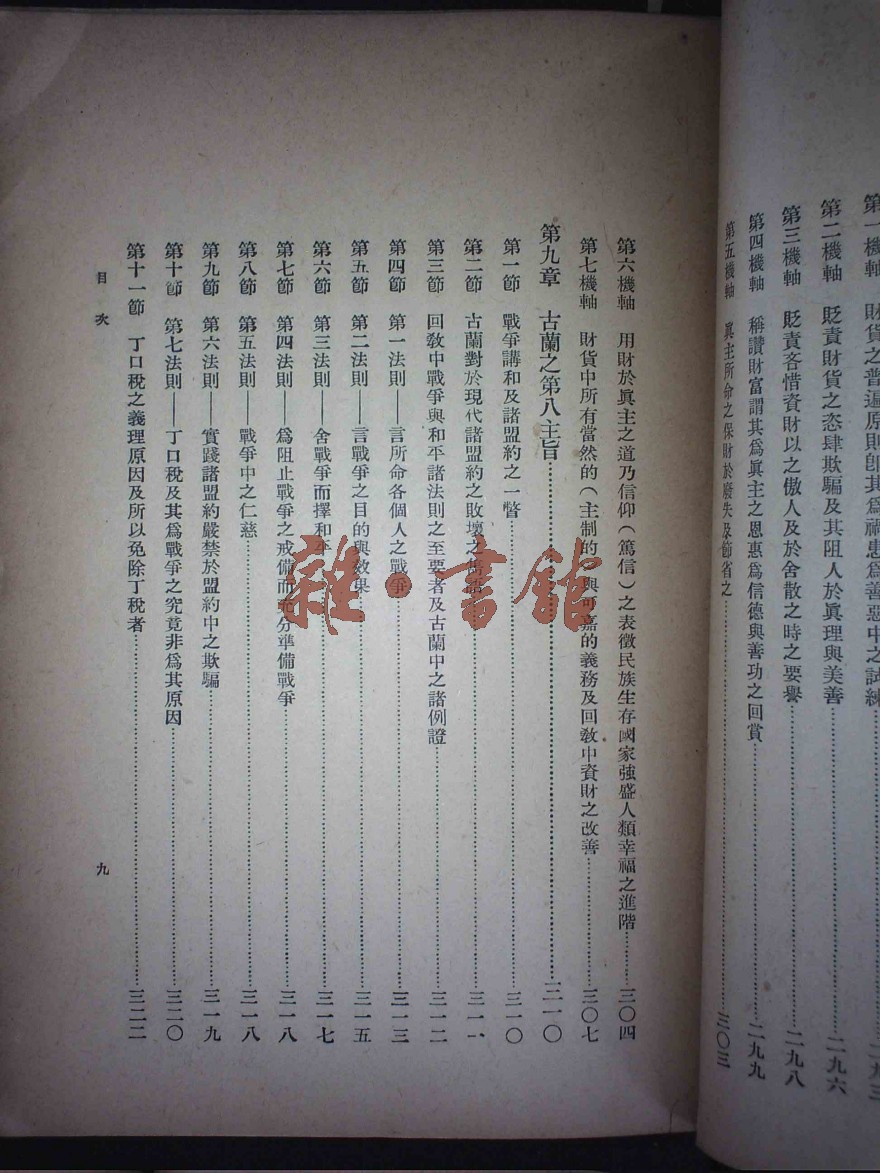 第一機軸　財貨之普遍原則卽其爲禍患爲善惡中之試練……二九三
第二機軸　貶責財貨之恣肆欺騙及其阻人於眞理與美善……二九六
第三機軸　貶責吝惜資財以之傲人及於舍散之時之要譽……二九八
第四機軸　稱讚財富謂其爲眞主之恩惠爲信德與善功之回賞……二九九
第五機軸　眞主所命之保財於廢失及節省之……三〇三
第六機軸　用財於眞主之道乃信仰（篤信）之表徵民族生存國家強盛人類幸福之進階……三〇四
第七機軸　財貨中所有當然的（主制的）與可嘉的義務及回敎中資財之改善……三〇七
第九章　古蘭之第八主旨……三一〇
第一節　戰爭講和及諸盟約之一瞥……三一〇
第二節　古蘭對於現代諸盟約之敗壞之
第三節　回敎中戰爭與和平諸法則之至要者及古蘭中之諸例證……三一二
第四節　第一法則——言所命各個人之戰爭……三一三
第五節　第二法則——言戰爭之目的與效果……三一五
第六節　第三法則——舍戰爭而擇和平……三一七
第七節　第四法則——爲阻止戰爭之戒備而充分準備戰爭……三一八
第八節　第五法則——戰爭中之仁慈……三一八
第九節　第六法則——實踐諸盟約嚴禁於盟約中之欺騙……三一九
第十節　第七法則——丁口稅及其爲戰爭之究竟非爲其原因……三二〇
第十一節　丁口稅之義理原因及所以免除丁稅者……三二二
目次
九
雜·書館